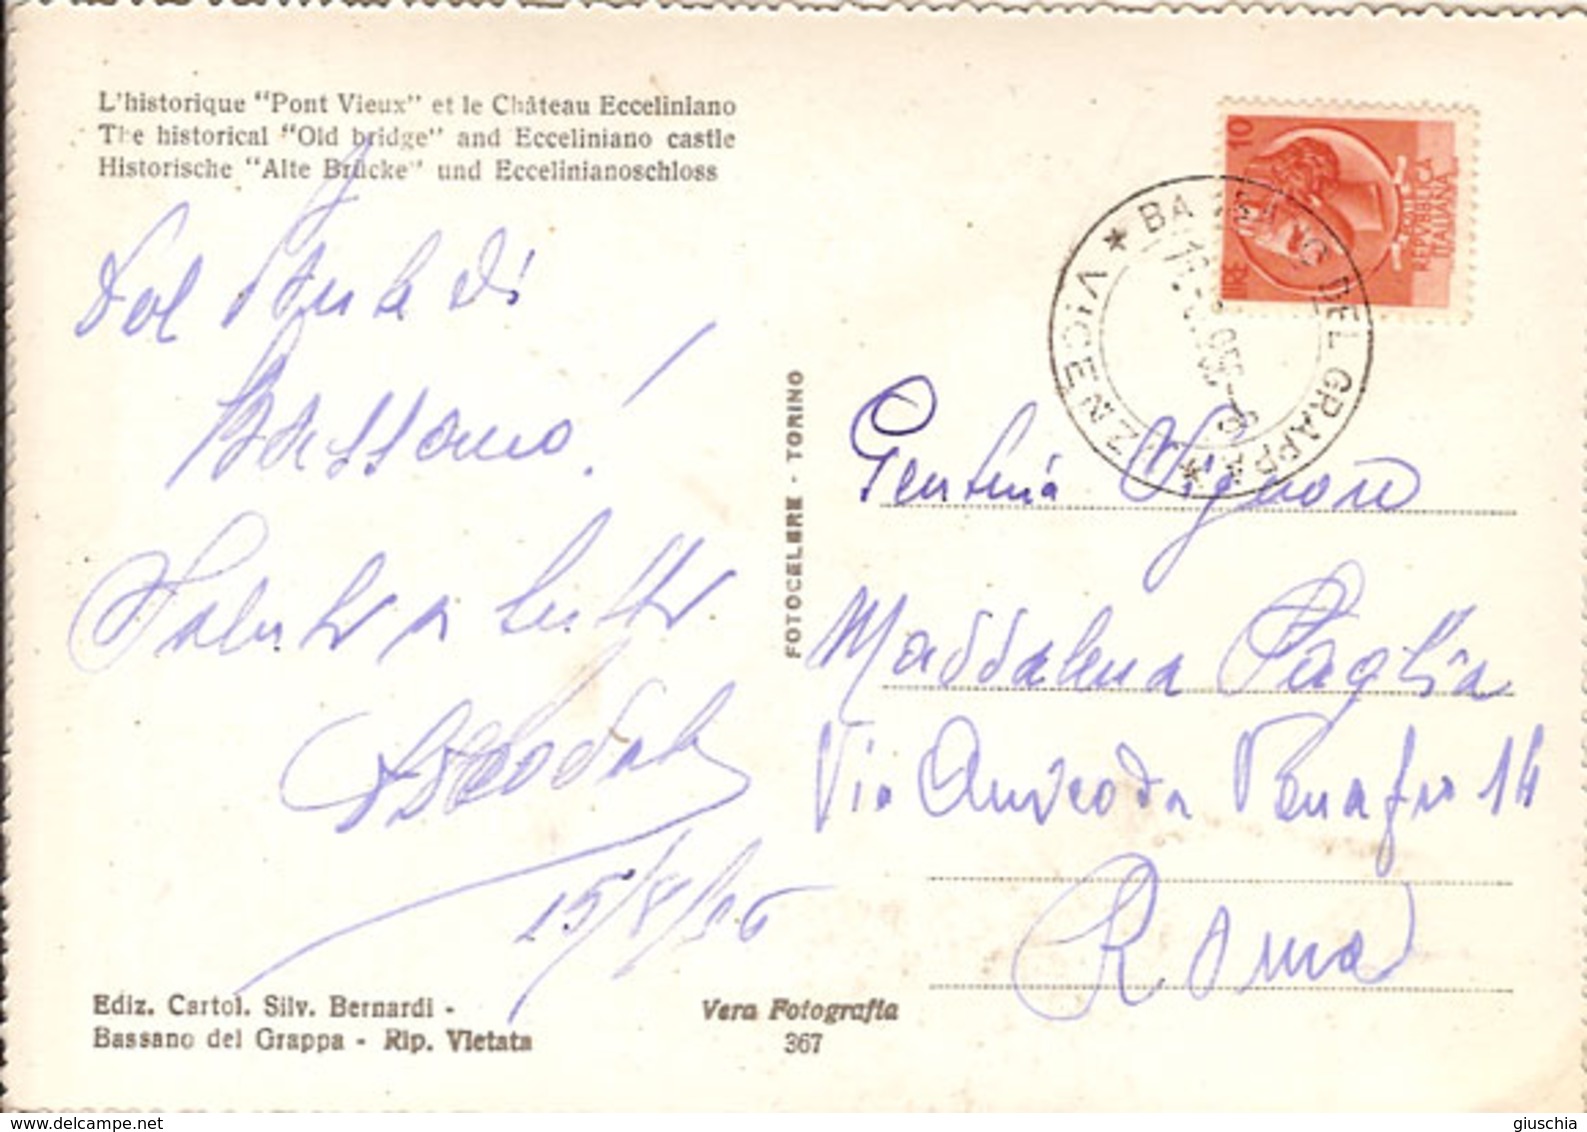 L'historique "Pont Vieux" et le Château Ecceliniano
The historical "Old bridge" and Ecceliniano castle
Historische "Alte Brücke" und Eccelinianoschloss
Dal di
Bassano!
Saluti a tutti
15/8/56
Ediz. Cartol. Silv. Bernardi -
Bassano del Grappa - Rip. Vietata
Vera Fotografia
367
FOTOCELERE - TORINO
10
LIRE
POSTE
REPVBBLICA
ITALIANA
* BASSANO DEL GRAPPA * VICENZA
Gentma Vignone
Maddalena Paglia
Via Venafro 14
Roma
www.delcampe.net
giuschia